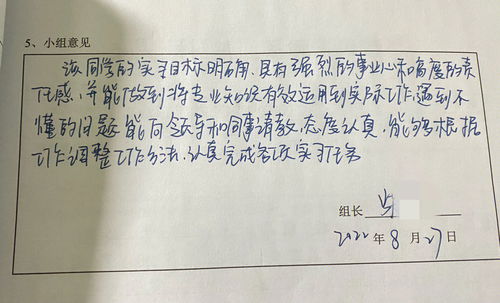 5、小组意见
该同学的实习目标明确,具有强烈的事业心和高度的责
任感,并能做到将专业知识有效运用到实际工作,遇到不
懂的问题能向领导和同事请教,态度认真,能够根据
工作调整工作方法,认真完成各项实习任务
组长
2022年8月27日